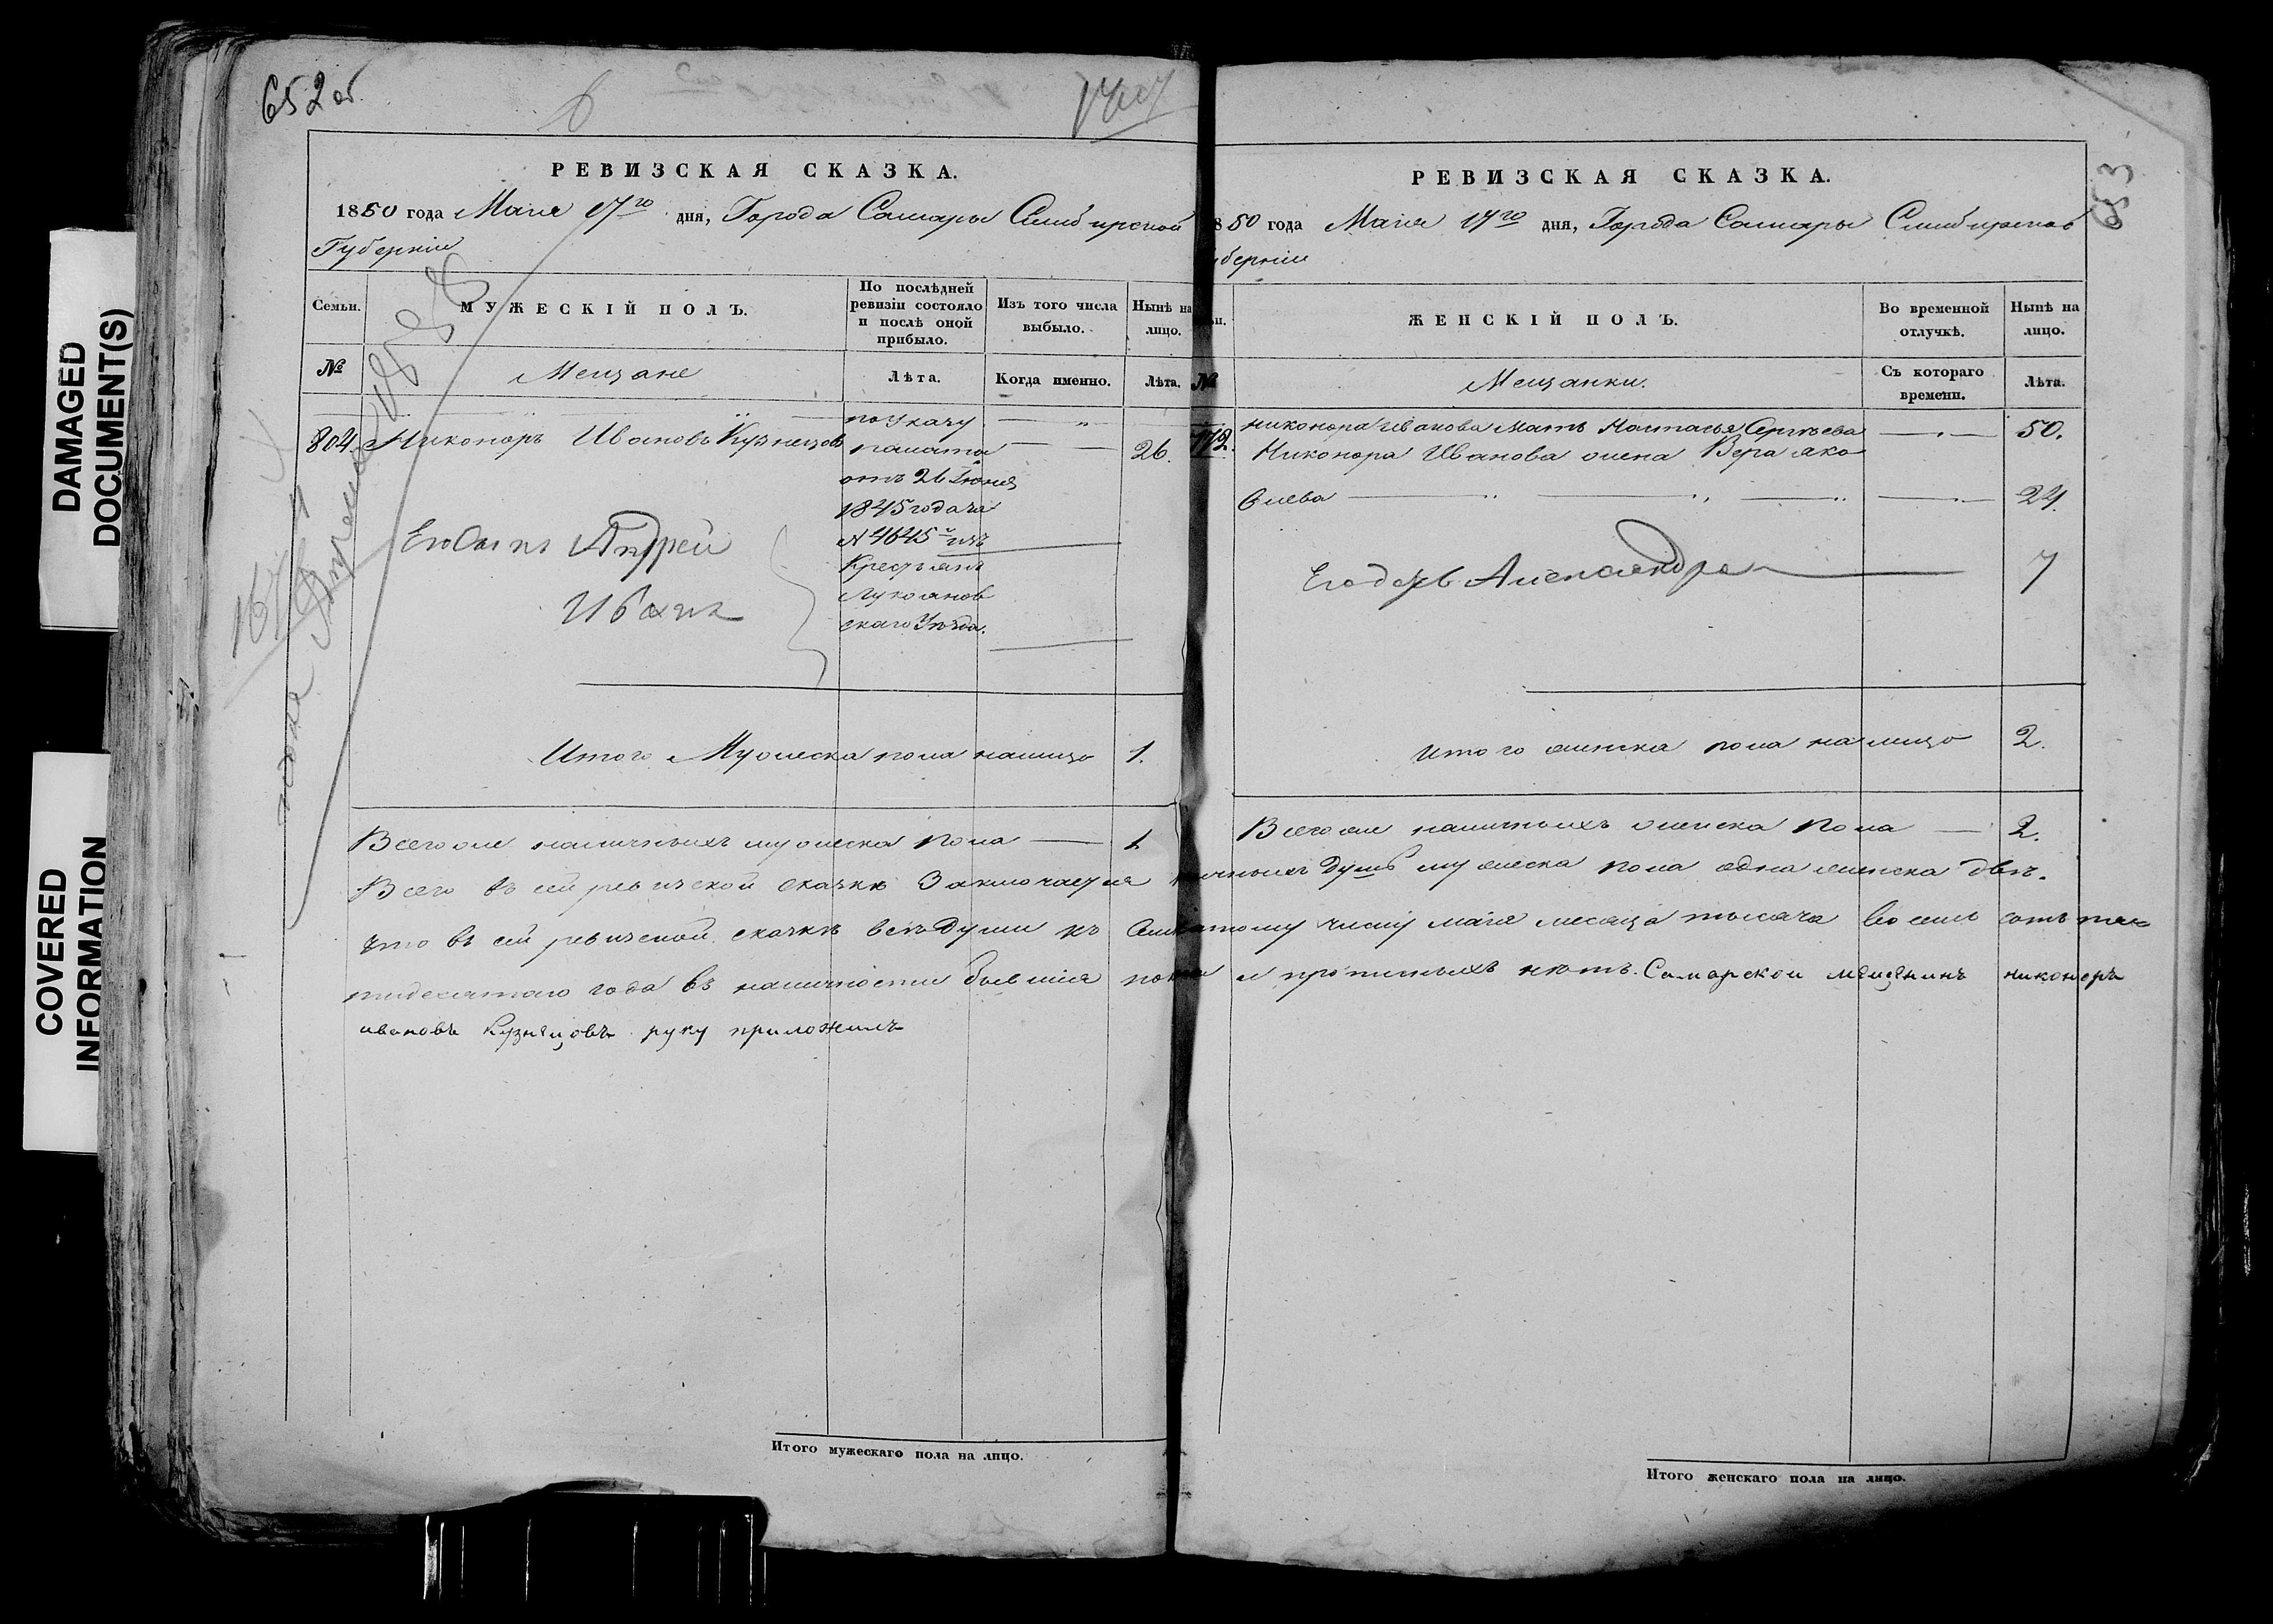 652 об
РЕВИЗСКАЯ СКАЗКА.
1850 года Маия 17го дня, Города Самары Симбирской
Губерніи
Семьи.
МУЖЕСКІЙ ПОЛЪ.
По послѣдней
ревизіи состояло
и послѣ оной
прибыло.
Изъ того числа
выбыло.
Нынѣ на
лицо.
№
Мещане
Лѣта.
Когда именно.
Лѣта.
804. Никоноръ Ивановъ Кузнецовъ
26.
по Указу
палаты
отъ 26 Іюня
1845 года за
№ 4645 изъ
Крестьянъ
Лукоянов
скаго Уѣзда.
Его Сынъ Андрей
Иванъ
Итого Мужеска пола налицо 1.
Всегоже наличныхъ мужеска пола 1.
Всего въ сей ревизской сказкѣ Заключается
что въ сей ревизской сказкѣ всѣ души къ
тидесятаго года въ наличности бывшія
ивановъ Кузнецовъ руку приложилъ
Итого мужескаго пола на лицо.
653
РЕВИЗСКАЯ СКАЗКА.
850 года Маия 17го дня, Города Самары Симбирской
берніи
ЖЕНСКІЙ ПОЛЪ.
Во временной
отлучкѣ.
Нынѣ на
лицо.
№
Мещанки.
Съ котораго
времени.
Лѣта.
никонора Иванова мать Настасья Сергѣева 50.
Никонора Иванова жена Вера яко
влева 24.
Его дочь Александра 7
Итого женска пола налицо 2.
Всегоже наличныхъ женска пола 2.
душъ мужеска пола одна женска двѣ.
числу маия месяца тысяча восемь сотъ пя
и прописныхъ нѣтъ. Самарской мещенинъ никоноръ
Итого женскаго пола на лицо.
DAMAGED
DOCUMENT(S)
COVERED
INFORMATION